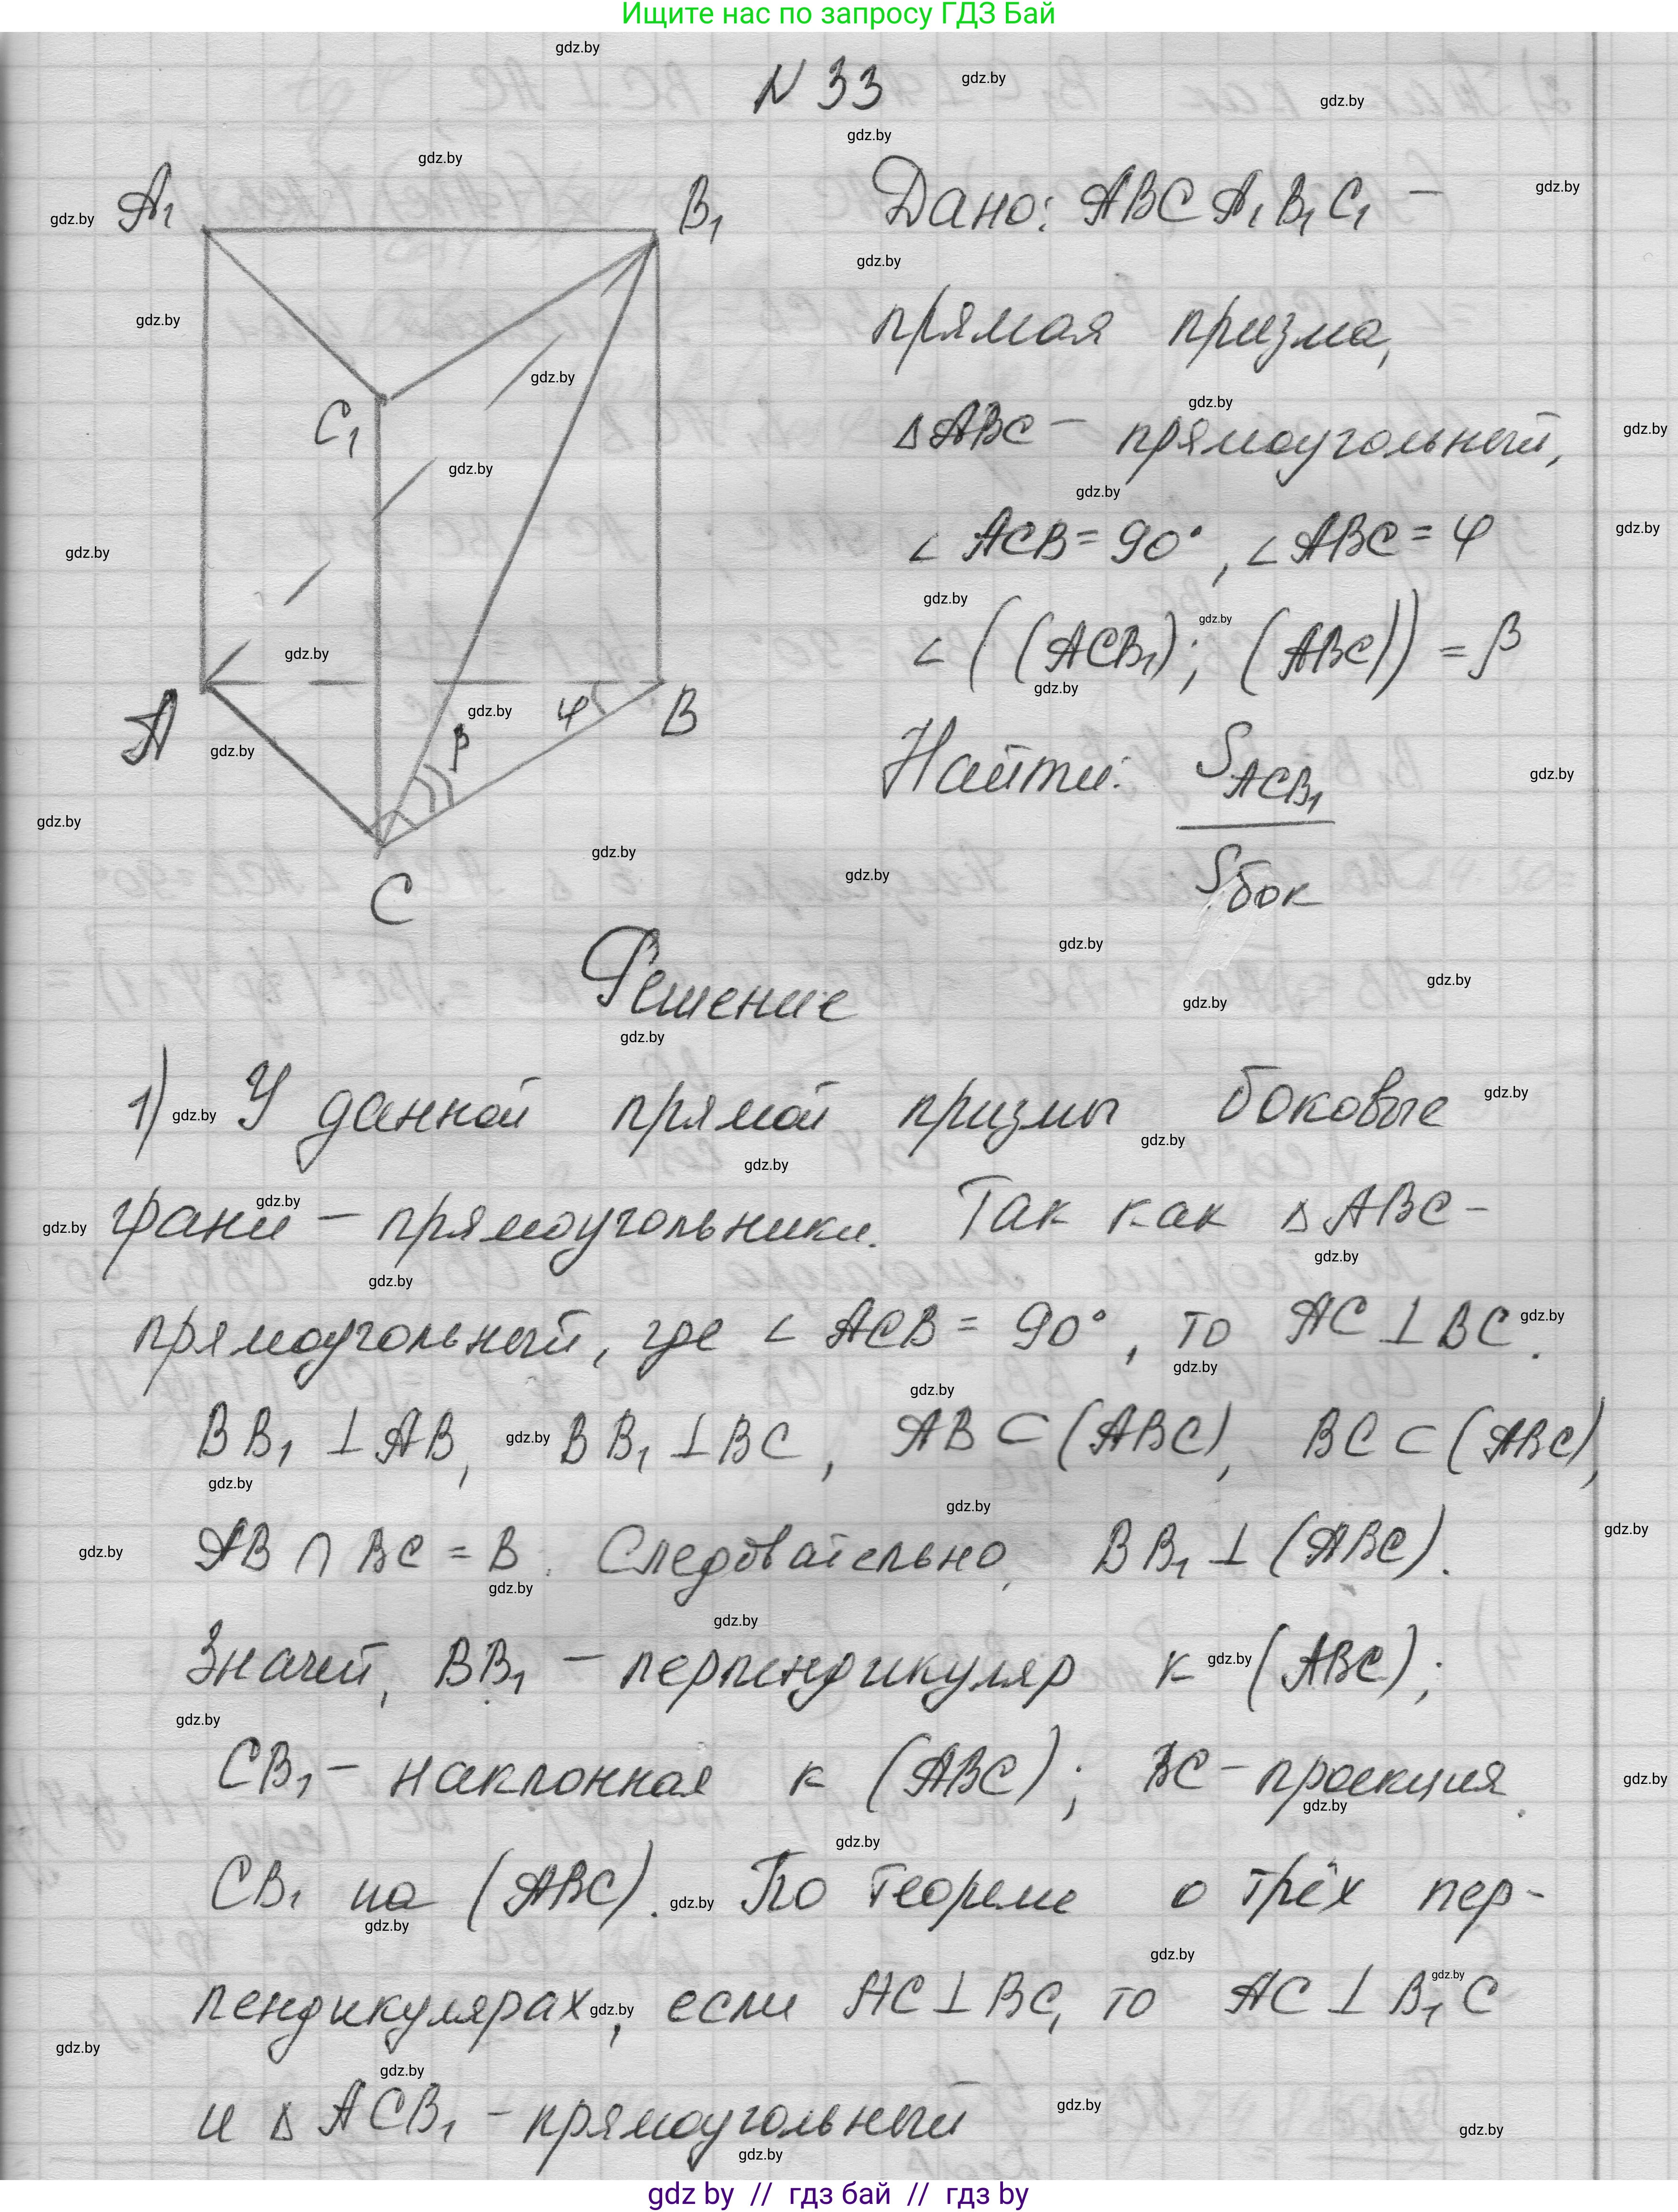 Ищите нас по запросу ГДЗ Бай
N 33
A₁
B₁
C₁
A
B
C
φ
β
Дано: ABCA₁B₁C₁ –
прямая призма,
△ABC – прямоугольный,
∠ACB = 90°, ∠ABC = φ
∠((ACB₁); (ABC)) = β
Найти: S_ACB₁ / S_бок
Решение
1) У данной прямой призмы боковые
грани – прямоугольники. Так как △ABC –
прямоугольный, где ∠ACB = 90°, то AC ⊥ BC.
BB₁ ⊥ AB, BB₁ ⊥ BC, AB ⊂ (ABC), BC ⊂ (ABC),
AB ∩ BC = B. Следовательно, BB₁ ⊥ (ABC).
Значит, BB₁ – перпендикуляр к (ABC);
CB₁ – наклонная к (ABC); BC – проекция
CB₁ на (ABC). По теореме о трёх пер-
пендикулярах, если AC ⊥ BC, то AC ⊥ B₁C
и △ACB₁ – прямоугольный
gdz by // гдз бай // гдз by